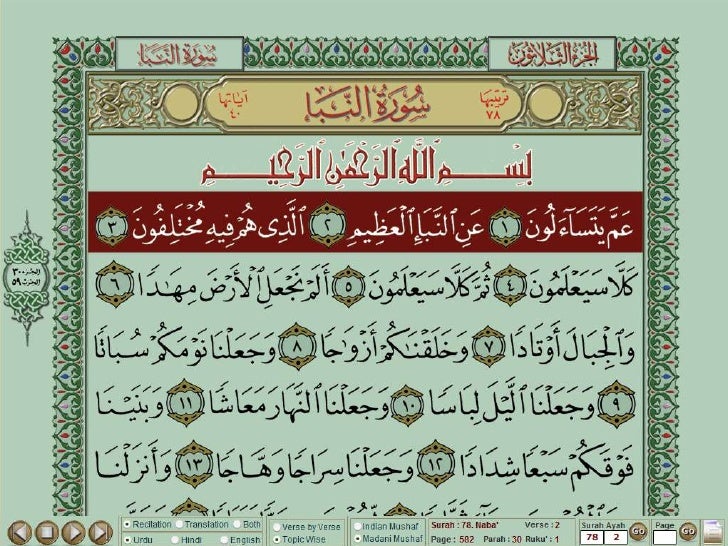 الجزء الثلاثون
سورة النبأ
ترتيبها ٧٨
سورة النبأ
آياتها ٤٠
بسم الله الرحمن الرحيم
عَمَّ يَتَسَآءَلُونَ ١ عَنِ ٱلنَّبَإِ ٱلْعَظِيمِ ٢ ٱلَّذِى هُمْ فِيهِ مُخْتَلِفُونَ ٣
كَلَّا سَيَعْلَمُونَ ٤ ثُمَّ كَلَّا سَيَعْلَمُونَ ٥ أَلَمْ نَجْعَلِ ٱلْأَرْضَ مِهَٰدًا ٦
وَٱلْجِبَالَ أَوْتَادًا ٧ وَخَلَقْنَٰكُمْ أَزْوَٰجًا ٨ وَجَعَلْنَا نَوْمَكُمْ سُبَاتًا
٩ وَجَعَلْنَا ٱلَّيْلَ لِبَاسًا ١٠ وَجَعَلْنَا ٱلنَّهَارَ مَعَاشًا ١١ وَبَنَيْنَا
فَوْقَكُمْ سَبْعًا شِدَادًا ١٢ وَجَعَلْنَا سِرَاجًا وَهَّاجًا ١٣ وَأَنزَلْنَا
Recitation Translation Both
Urdu Hindi English
Verse by Verse
Topic Wise
Indian Mushaf
Madani Mushaf
Surah : 78. Naba' Verse : 2
Page : 582 Parah : 30 Ruku' : 1
Surah Ayah
78 2 Go
Page
Go